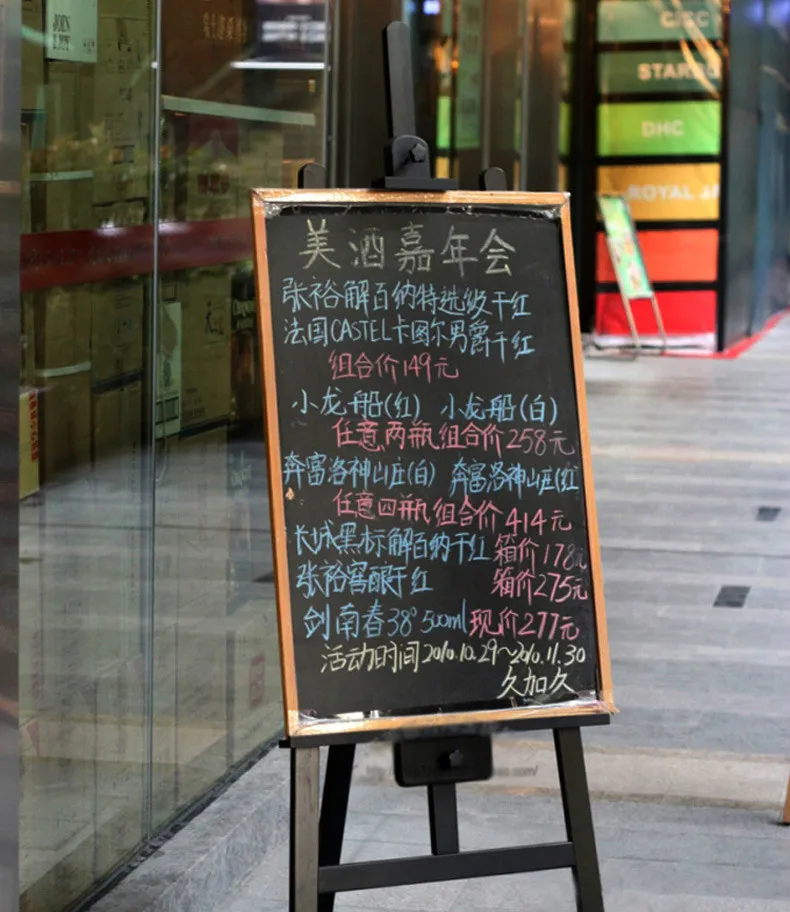 JOIN
CISC
DHC
美酒嘉年会
张裕解百纳特选级干红
法国CASTEL卡图尔男爵干红
组合价149元
小龙船(红) 小龙船(白)
任意两瓶组合价258元
奔富洛神山庄(白) 奔富洛神山庄(红
任意四瓶组合价414元
长城黑标解百纳干红 箱价178元
张裕窖酿干红 箱价275元
剑南春38°500ml现价277元
活动时间2010.10.29~2010.11.30
久加久